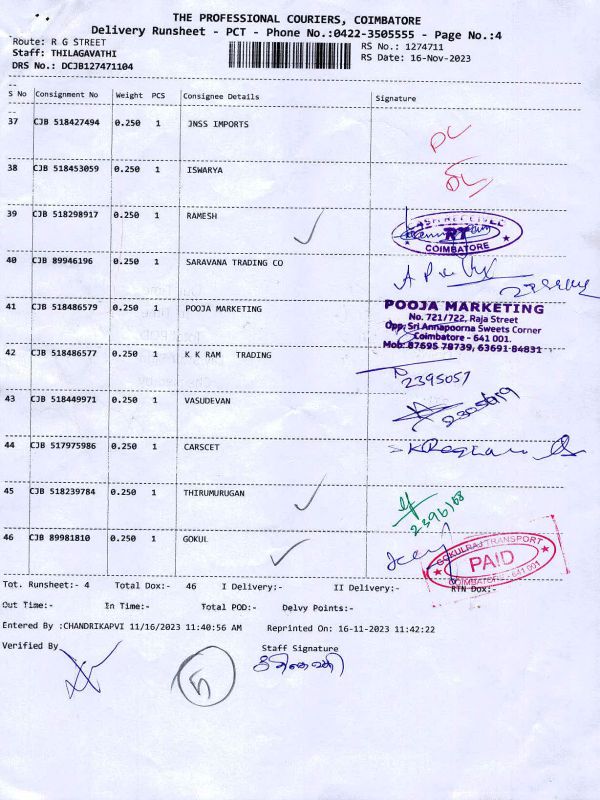 THE PROFESSIONAL COURIERS, COIMBATORE
Delivery Runsheet - PCT - Phone No.:0422-3505555 - Page No.:4
Route: R G STREET RS No.: 1274711
Staff: THILAGAVATHI RS Date: 16-Nov-2023
DRS No.: DCJB127471104
S No Consignment No Weight PCS Consignee Details Signature
37 CJB 518427494 0.250 1 JNSS IMPORTS DL
38 CJB 518453059 0.250 1 ISWARYA DL
39 CJB 518298917 0.250 1 RAMESH
CASH RECEIVED
RT
COIMBATORE
40 CJB 89946196 0.250 1 SARAVANA TRADING CO
41 CJB 518486579 0.250 1 POOJA MARKETING
POOJA MARKETING
No. 721/722, Raja Street
Opp. Sri Annapoorna Sweets Corner
Coimbatore - 641 001.
Mob: 87695 78739, 63691 84831
42 CJB 518486577 0.250 1 K K RAM TRADING
2395057
43 CJB 518449971 0.250 1 VASUDEVAN
44 CJB 517975986 0.250 1 CARSCET
45 CJB 518239784 0.250 1 THIRUMURUGAN
2396168
46 CJB 89981810 0.250 1 GOKUL
GOKULRAJ TRANSPORT
PAID
COIMBATORE - 641 001
Tot. Runsheet:- 4 Total Dox:- 46 I Delivery:- II Delivery:- RTN Dox:-
Out Time:- In Time:- Total POD:- Delvy Points:-
Entered By :CHANDRIKAPVI 11/16/2023 11:40:56 AM Reprinted On: 16-11-2023 11:42:22
Verified By Staff Signature
5